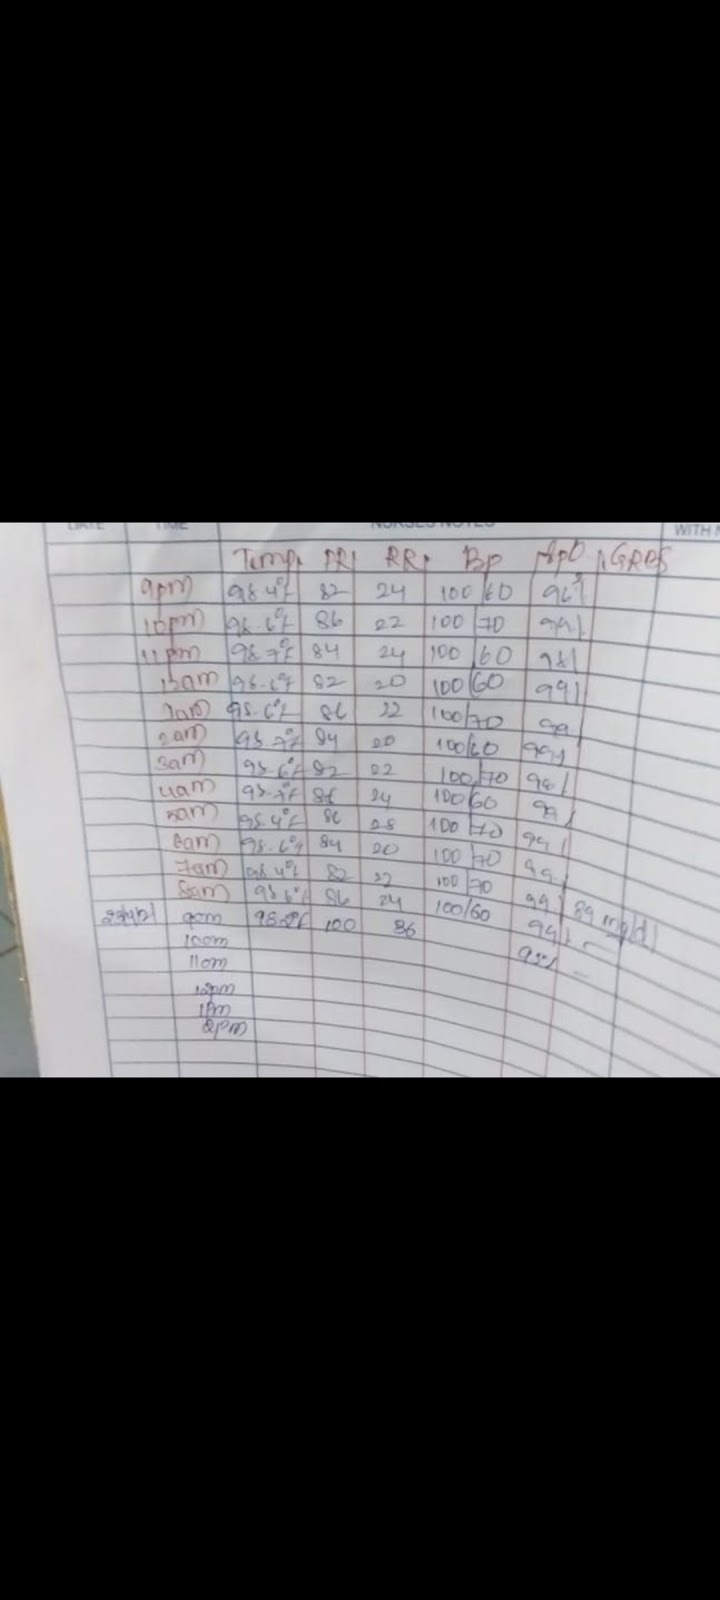 DATE TIME NURSES NOTES WITH
Temp. PR. RR. BP SpO2 GRBS
9pm 98.4°F 82 24 100/60 96%
10pm 98.6°F 86 22 100/70 99%
11pm 98.7°F 84 24 100/60 98%
12am 98.6°F 82 20 100/60 99%
1am 98.6°F 86 22 100/70 99
2am 98.7°F 84 20 100/60 99%
3am 98.6°F 82 22 100/70 98%
4am 98.7°F 86 24 100/60 99%
5am 98.4°F 86 28 100/70 99%
6am 98.6°F 84 20 100/70 99
7am 98.4°F 82 22 100/70 99% 89 mg/dl
8am 98.6°F 86 24 100/60 99%
9am 100 36
10am
11am
12pm
1pm
2pm